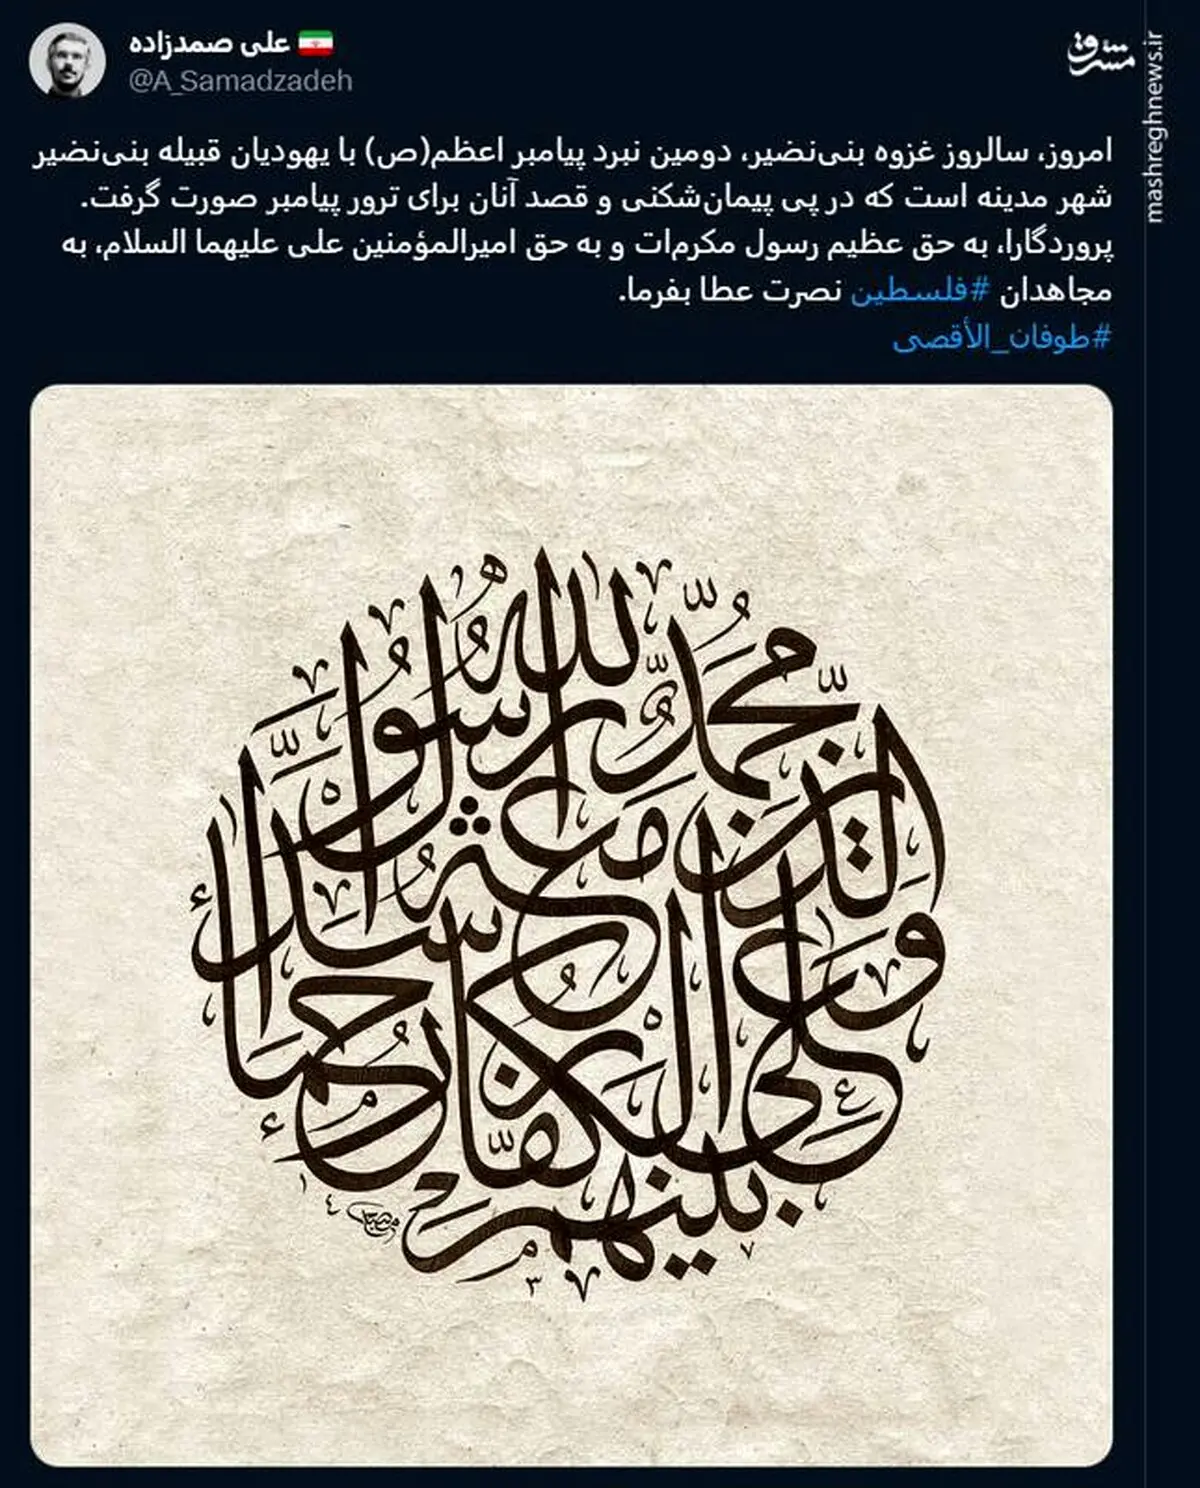 علی صمدزاده
@A_Samadzadeh
مشرق
mashreghnews.ir
امروز، سالروز غزوه بنی‌نضیر، دومین نبرد پیامبر اعظم(ص) با یهودیان قبیله بنی‌نضیر
شهر مدینه است که در پی پیمان‌شکنی و قصد آنان برای ترور پیامبر صورت گرفت.
پروردگارا، به حق عظیم رسول مکرم‌ات و به حق امیرالمؤمنین علی علیهما السلام، به
مجاهدان #فلسطین نصرت عطا بفرما.
#طوفان_الأقصى
محمد رسول الله
والذین معه أشداء
على الكفار رحماء
بينهم